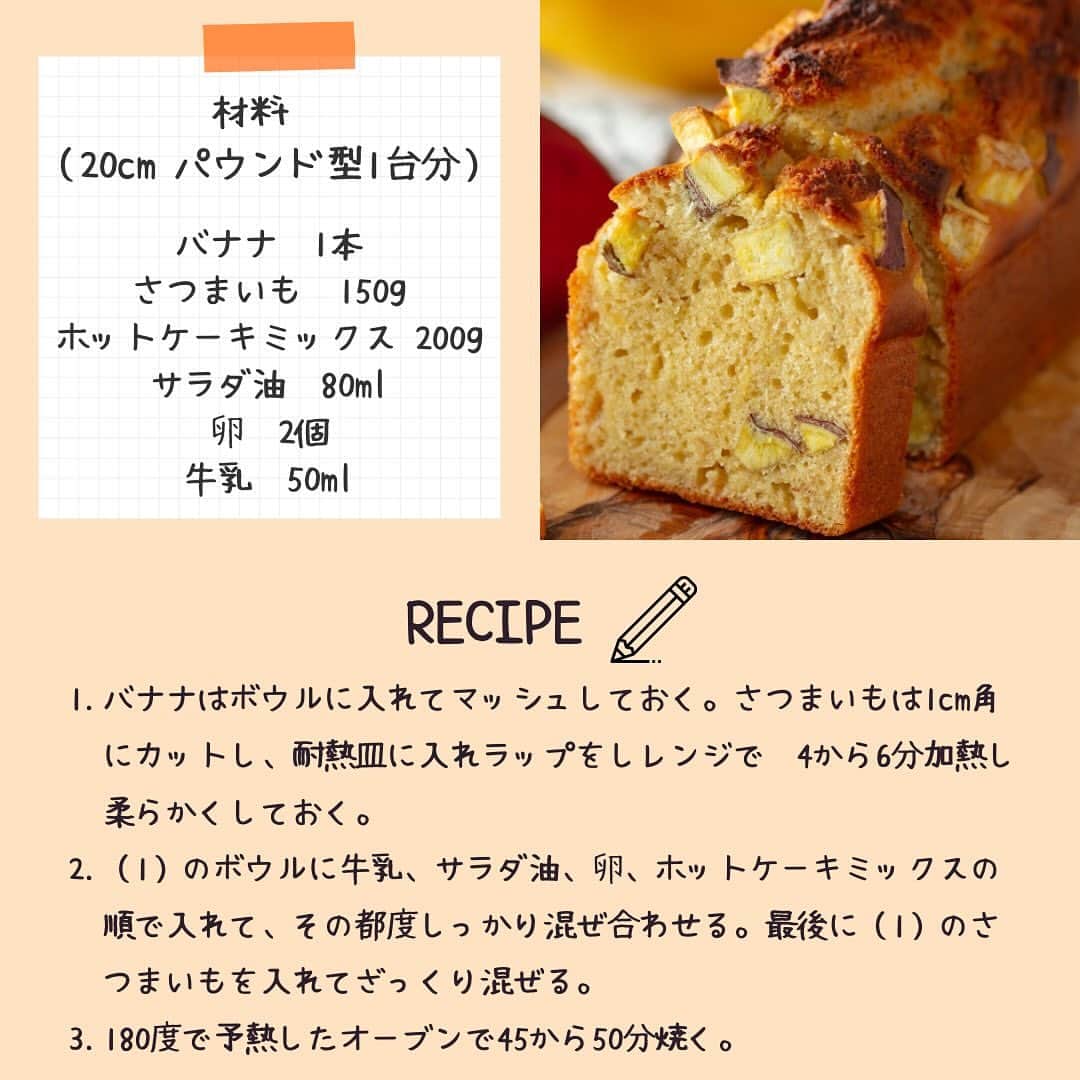 材料
(20cm パウンド型1台分)
バナナ　1本
さつまいも　150g
ホットケーキミックス 200g
サラダ油　80ml
卵　2個
牛乳　50ml
RECIPE
1. バナナはボウルに入れてマッシュしておく。さつまいもは1cm角
にカットし、耐熱皿に入れラップをしレンジで　4から6分加熱し
柔らかくしておく。
2. （1）のボウルに牛乳、サラダ油、卵、ホットケーキミックスの
順で入れて、その都度しっかり混ぜ合わせる。最後に（1）のさ
つまいもを入れてざっくり混ぜる。
3. 180度で予熱したオーブンで45から50分焼く。